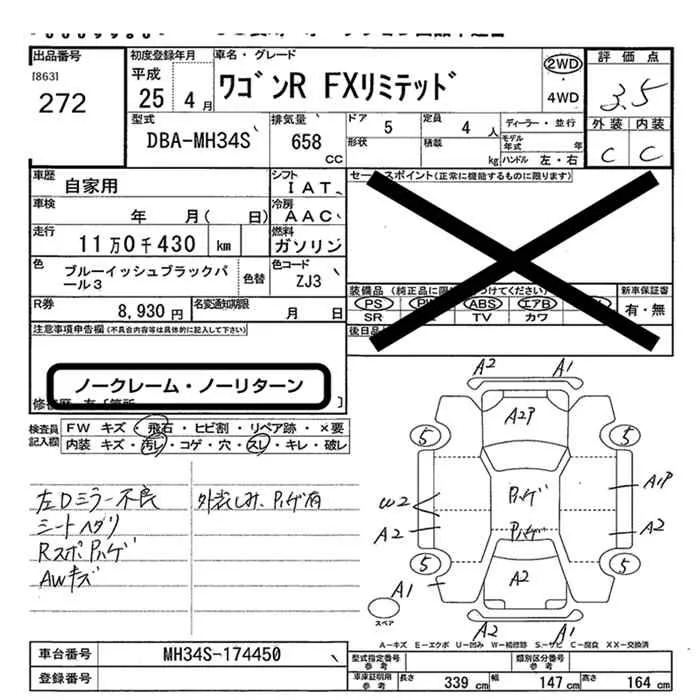 出品番号
[863]
272
初度登録年月
平成
25 4月
車名・グレード
ワゴンR FXリミテッド
2WD
・
4WD
評価点
3.5
外装 内装
C C
型式
DBA-MH34S
排気量
658
cc
ドア 5
形状
定員 4 人
積載 kg
ディーラー・並行
モデル年式 年
ハンドル 左・右
車歴
自家用
シフト
IAT
車検
年 月( 日)
冷房
AAC
走行
11万0千430 km
燃料
ガソリン
色
ブルーイッシュブラックパール3
色替
色コード
ZJ3
R券
8,930円
名変通知期限
月 日
注意事項申告欄 (不具合内容等は具体的に記入して下さい)
ノークレーム・ノーリターン
(正常に機能するものに限ります)
装備品
PS ABS エアB
SR TV カワ
新車保証書
有・無
後日品
検査員記入欄
FW キズ・飛石・ヒビ割・リペア跡・×要
内装 キズ・汚レ・コゲ・穴・スレ・キレ・破レ
左Dミラー不良
シートヘタリ
RスポPハゲ
AWキズ
外装しみ、Pハゲ有
A2 A1
A2P
5 5
A1P
Pハゲ
W2
A2 A2
Pハゲ
5 5
A2
A1
スペア
A2 A1
A-キズ E-エクボ U-凹み W-補修跡 S-サビ C-腐食 XX-交換済
車台番号
MH34S-174450
登録番号
型式指定番号
参考
類別区分番号
参考
車庫証明用
参考
長さ 339 cm 幅 147 cm 高さ 164 cm